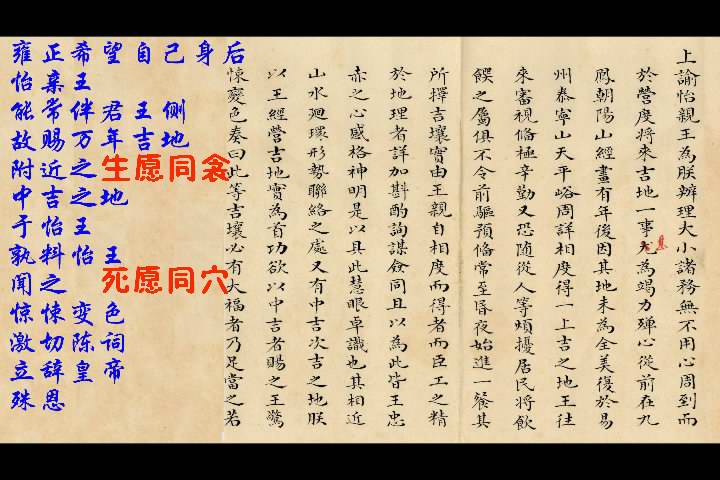 雍正希望自己身后
怡亲王
能常伴君王侧
故赐万年吉地
附近之
生愿同衾
中吉之地
于怡王
孰料怡王
闻之
死愿同穴
惊悚变色
激切陈词
立辞皇帝
殊恩
上諭怡親王為朕辦理大小諸務無不用心周到而
於營度將來吉地一事尤為竭力殫心從前在九
鳳朝陽山經畫有年後因其地未為全美復於易
州泰寧山天平峪周詳相度得一上吉之地王往
來審視備極辛勤又恐隨從人等頻擾居民將飲
饌之屬俱不令前驅預備常至昏夜始進一餐其
所擇吉壤實由王親自相度而得者而臣工之精
於地理者詳加斟酌詢謀僉同且以為此皆王忠
赤之心感格神明是以具此慧眼卓識也其相近
山水迴環形勢聯絡之處又有中吉次吉之地朕
以王經營吉地實為首功欲以中吉者賜之王驚
悚變色奏曰此等吉壤必有大福者乃足當之若